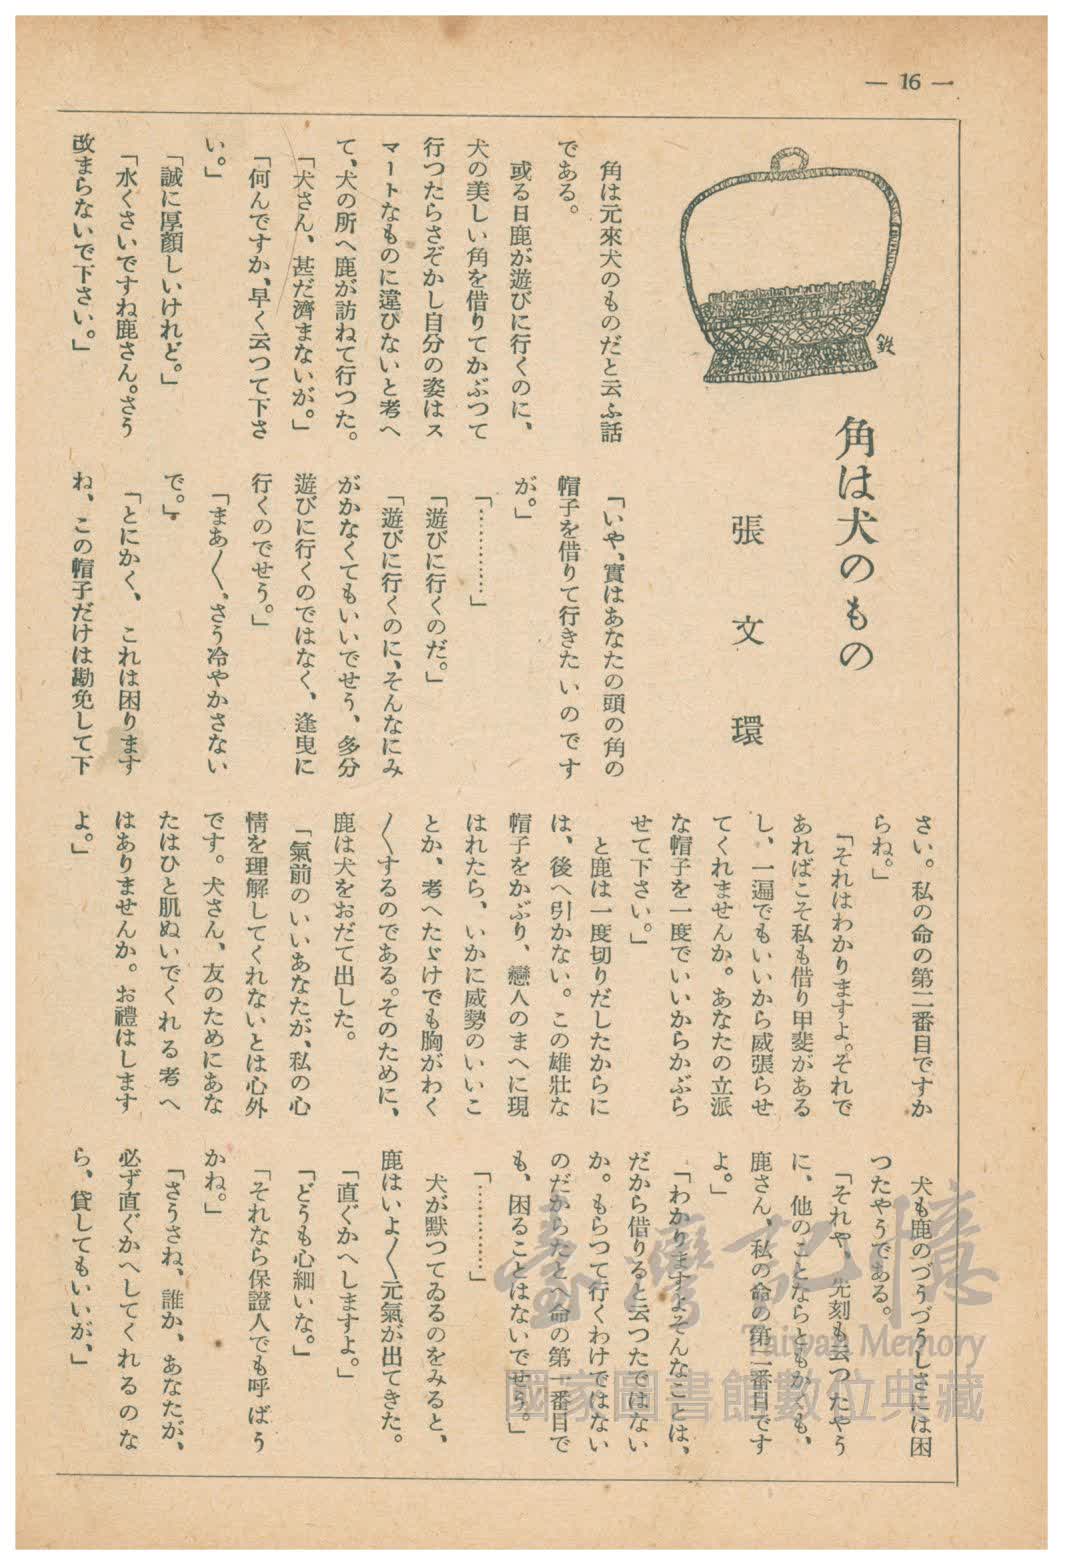 — 16 —
角は犬のもの
張文環
鉄
角は元來犬のものだと云ふ話
である。
或る日鹿が遊びに行くのに、
犬の美しい角を借りてかぶつて
行つたらさぞかし自分の姿はス
マートなものに違びないと考へ
て、犬の所へ鹿が訪ねて行つた。
「犬さん、甚だ濟まないが。」
「何んですか、早く云つて下さ
い。」
「誠に厚顏しいけれど。」
「水くさいですね鹿さん。さう
改まらないで下さい。」
「いや、實はあなたの頭の角の
帽子を借りて行きたいのです
が。」
「…………」
「遊びに行くのだ。」
「遊びに行くのに、そんなにみ
がかなくてもいいでせう、多分
遊びに行くのではなく、逢曳に
行くのでせう。」
「まあ〱、さう冷やかさない
で。」
「とにかく、これは困ります
ね、この帽子だけは勘免して下
さい。私の命の第二番目ですか
らね。」
「それはわかりますよ。それで
あればこそ私も借り甲斐がある
し、一遍でもいいから威張らせ
てくれませんか。あなたの立派
な帽子を一度でいいからかぶら
せて下さい。」
と鹿は一度切りだしたからに
は、後へ引かない。この雄壯な
帽子をかぶり、戀人のまへに現
はれたら、いかに威勢のいいこ
とか、考へたゞけでも胸がわく
〱するのである。そのために、
鹿は犬をおだて出した。
「氣前のいいあなたが、私の心
情を理解してくれないとは心外
です。犬さん、友のためにあな
たはひと肌ぬいでくれる考へ
はありませんか。お禮はします
よ。」
犬も鹿のづうづうしさには困
つたやうである。
「それや、先刻も云つたやう
に、他のことならともかくも、
鹿さん、私の命の第二番目です
よ。」
「わかりますよそんなことは、
だから借りると云つたではない
か。もらつて行くわけではない
のだからたとへ命の第一番目で
も、困ることはないでせう。」
「…………」
犬が默つてゐるのをみると、
鹿はいよ〱元氣が出てきた。
「直ぐかへしますよ。」
「どうも心細いな。」
「それなら保證人でも呼ばう
かね。」
「さうさね、誰か、あなたが、
必ず直ぐかへしてくれるのな
ら、貸してもいいが、」
臺灣記憶
Taiwan Memory
國家圖書館數位典藏